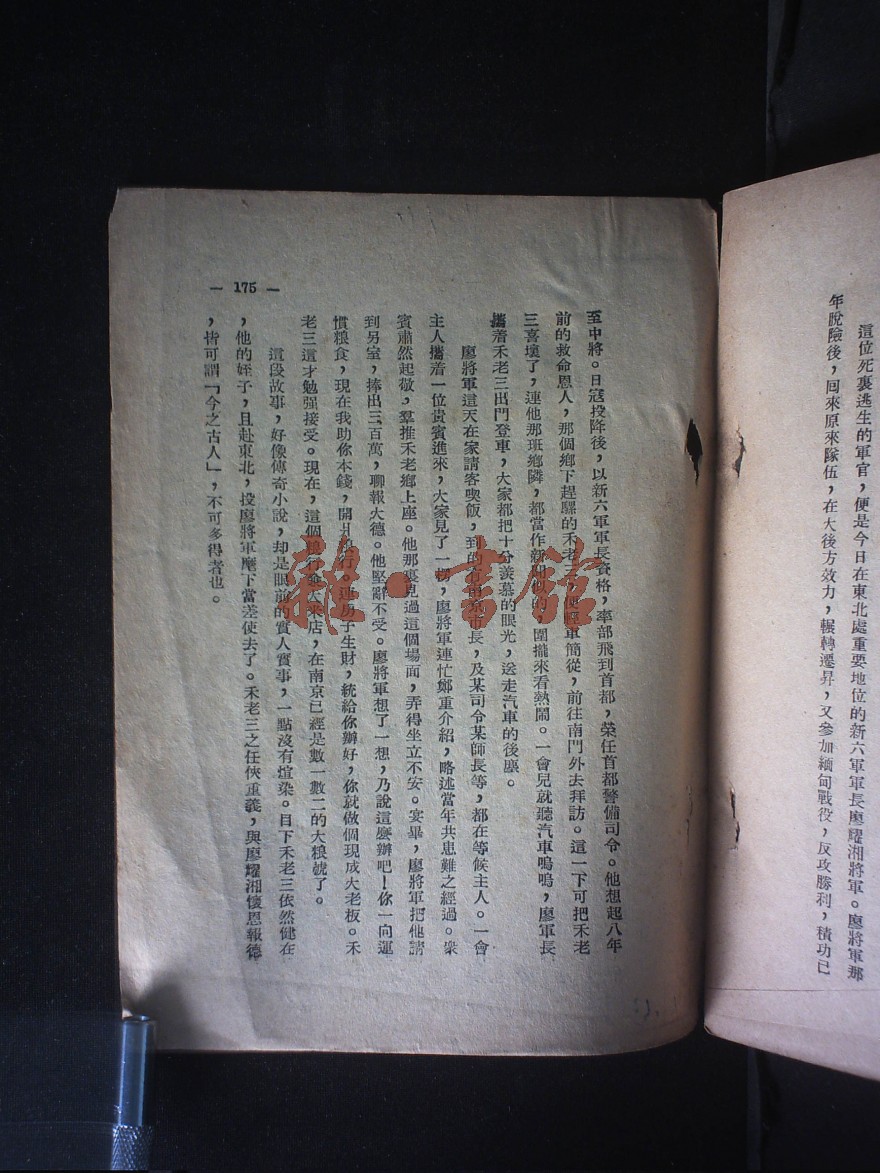 這位死裏逃生的軍官，便是今日在東北處重要地位的新六軍軍長廖耀湘將軍。廖將軍那
年脫險後，回來原來隊伍，在大後方效力，輾轉遷昇，又參加緬甸戰役，反攻勝利，積功已
至中將。日寇投降後，以新六軍軍長資格，率部飛到首都，榮任首都警備司令。他想起八年
前的救命恩人，那個鄉下趕騾的禾老三，便輕軍簡從，前往南門外去拜訪。這一下可把禾老
三喜壞了，連他那班鄉隣，都當作新聞似的，圍攏來看熱鬧。一會兒就聽汽車嗚嗚，廖軍長
攜着禾老三出門登車，大家都把十分羨慕的眼光，送走汽車的後塵。
廖將軍這天在家請客喫飯，到的有南京市長，及某司令某師長等，都在等候主人。一會
主人攜着一位貴賓進來，大家見了一楞，廖將軍連忙鄭重介紹，略述當年共患難之經過。衆
賓肅然起敬，羣推禾老鄉上座。他那裏見過這個場面，弄得坐立不安。宴畢，廖將軍把他請
到另室，捧出三百萬，聊報大德。他堅辭不受。廖將軍想了一想，乃說這麼辦吧！你一向運
慣粮食，現在我助你本錢，開爿粮行。連房子生財，統給你辦好，你就做個現成大老板。禾
老三這才勉强接受。現在，這個粮行發大米店，在南京已經是數一數二的大粮號了。
這段故事，好像傳奇小說，却是眼前的實人實事，一點沒有煊染。目下禾老三依然健在
，他的姪子，且赴東北，投廖將軍麾下當差使去了。禾老三之任俠重義，與廖耀湘懷恩報德
，皆可謂「今之古人」，不可多得者也。
— 175 —
雜·書館